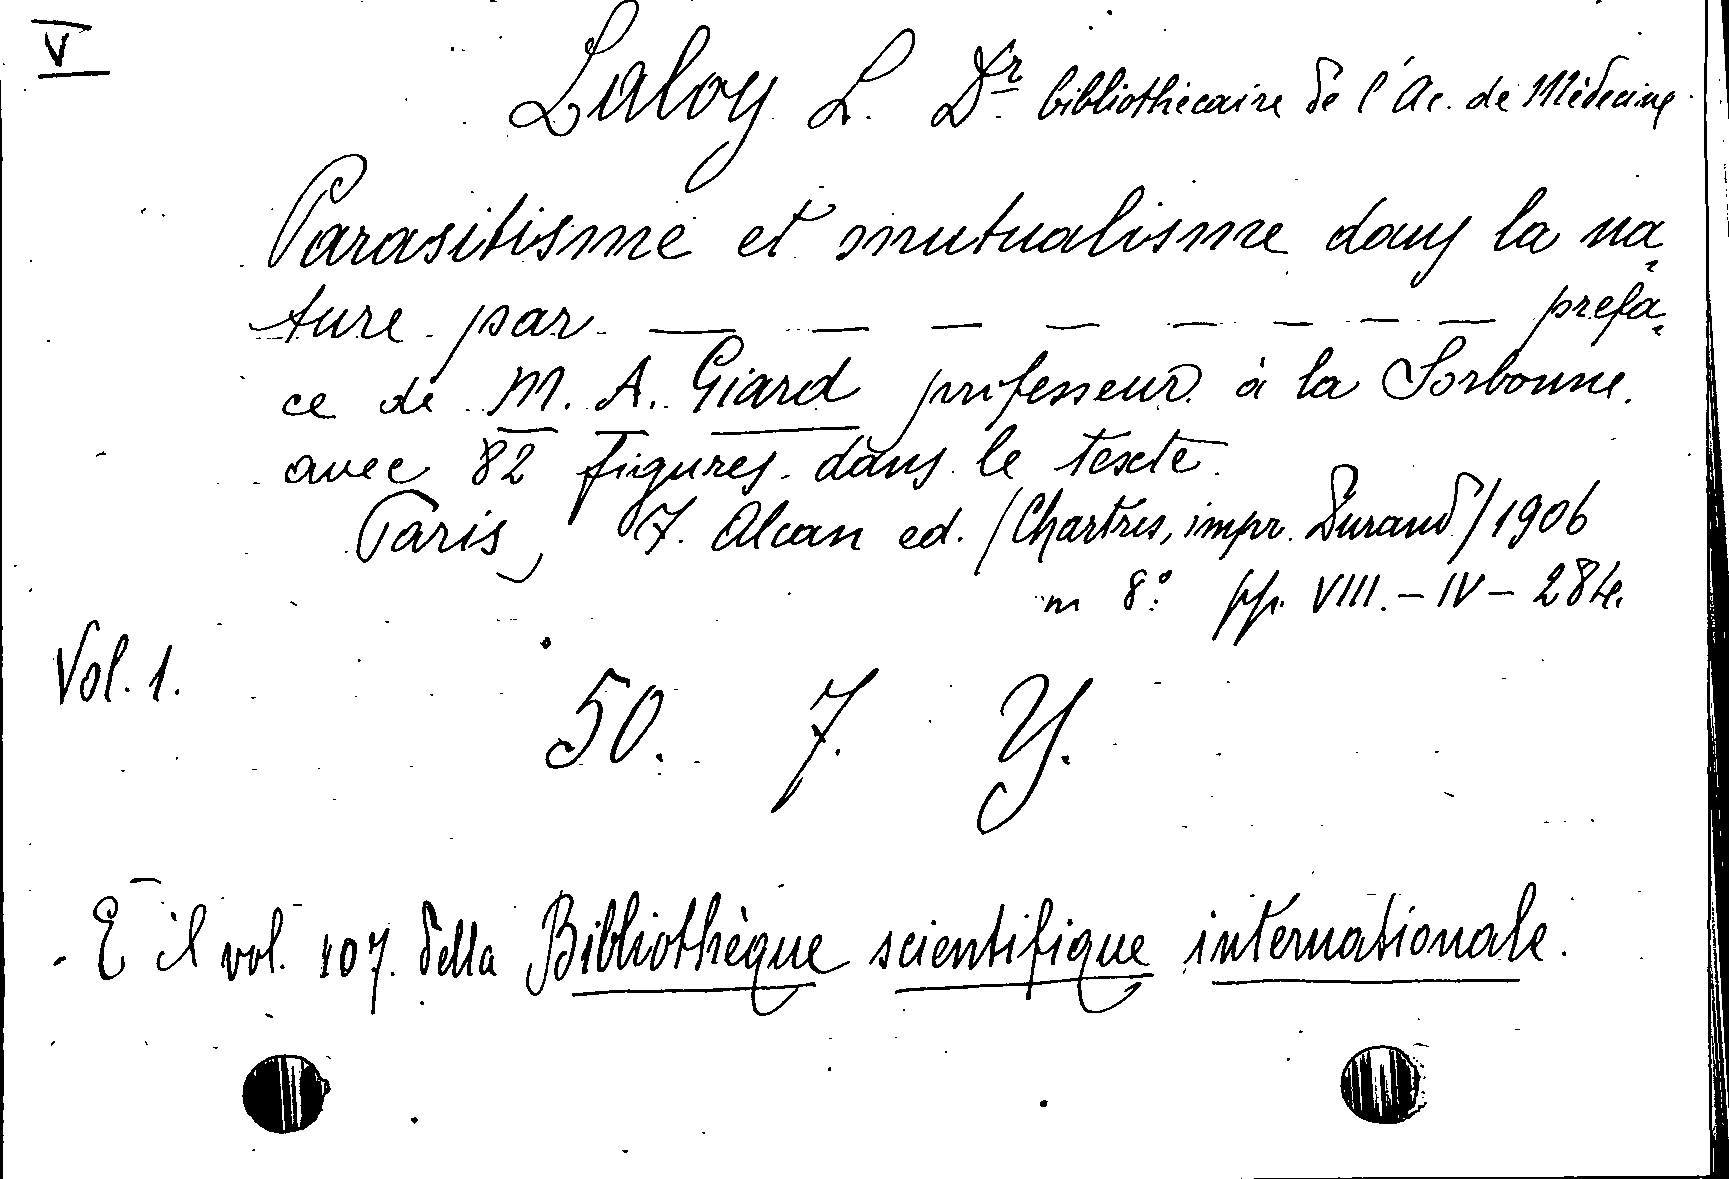 V
Laloy L. Dr. bibliothécaire de l'Ac. de Médecine
Parasitisme et mutualisme dans la na-
ture par — — — — — — — — préfa-
ce de M. A. Giard professeur à la Sorbonne.
avec 82 figures dans le texte.
Paris, F. Alcan ed. (Chartres, impr. Durand) 1906
in 8.° pp. VIII. – IV – 284.
Vol. 1.
50. 7. Y.
È il vol. 107. della Bibliothèque scientifique internationale.